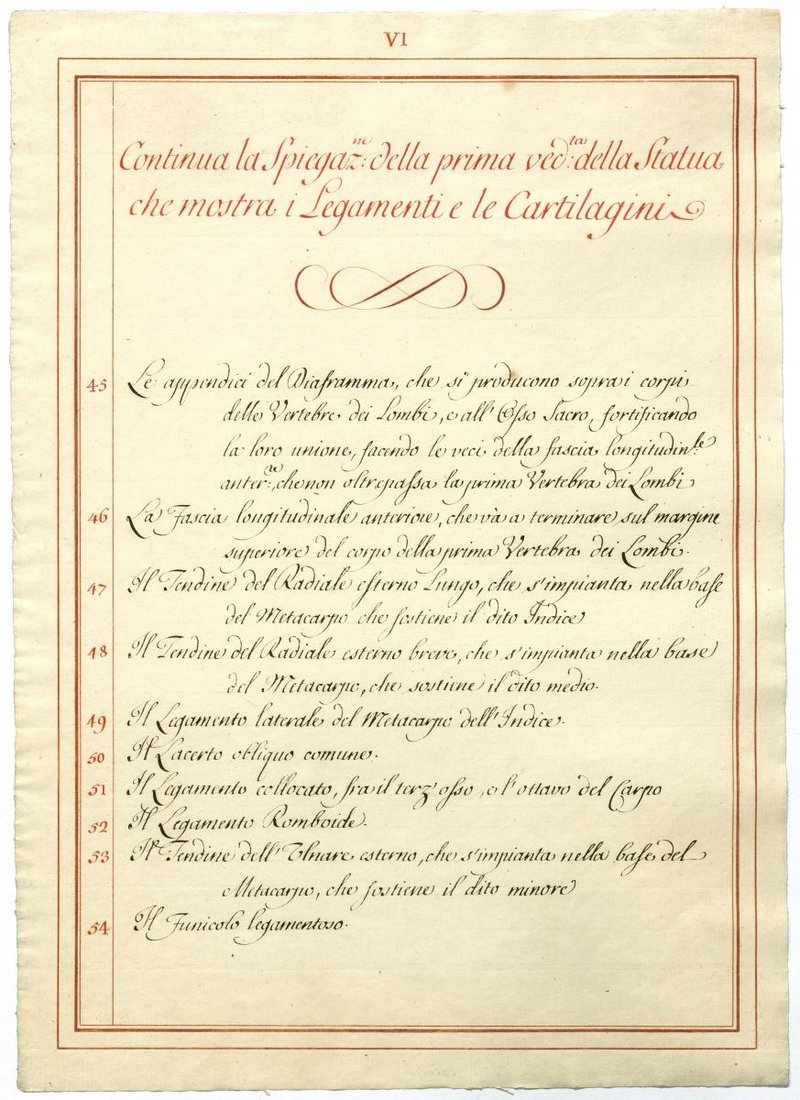 VI
Continua la Spiegaz.ne della prima ved.ta della Statua
che mostra i Legamenti e le Cartilagini
45 Le appendici del Diaframma, che si producono sopra i corpi
delle Vertebre dei Lombi, e all'Osso Sacro, fortificando
la loro unione, facendo le veci della fascia longitudin.le
anter.re, che non oltrepassa la prima Vertebra dei Lombi
46 La Fascia longitudinale anteriore, che và a terminare sul margine
superiore del corpo della prima Vertebra dei Lombi.
47 Il Tendine del Radiale esterno Lungo, che s'impianta nella base
del Metacarpo che sostiene il dito Indice
48 Il Tendine del Radiale esterno breve, che s'impianta nella base
del Metacarpo, che sostiene il dito medio.
49 Il Legamento laterale del Metacarpo dell'Indice.
50 Il Lacerto obliquo comune.
51 Il Legamento collocato, fra il terz'osso, e l'ottavo del Carpo
52 Il Legamento Romboide.
53 Il Tendine dell'Ulnare esterno, che s'impianta nella base del
Metacarpo, che sostiene il dito minore
54 Il Funicolo legamentoso.